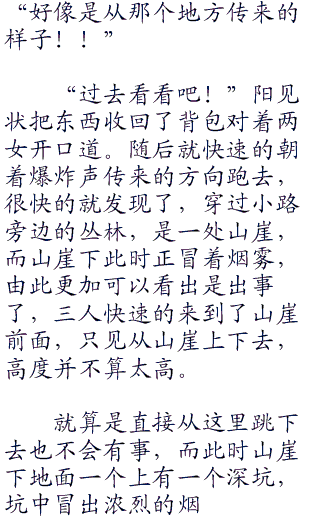 “好像是从那个地方传来的
样子！！”
“过去看看吧！”阳见
状把东西收回了背包对着两
女开口道。随后就快速的朝
着爆炸声传来的方向跑去，
很快的就发现了，穿过小路
旁边的丛林，是一处山崖，
而山崖下此时正冒着烟雾，
由此更加可以看出是出事
了，三人快速的来到了山崖
前面，只见从山崖上下去，
高度并不算太高。
就算是直接从这里跳下
去也不会有事，而此时山崖
下地面一个上有一个深坑，
坑中冒出浓烈的烟